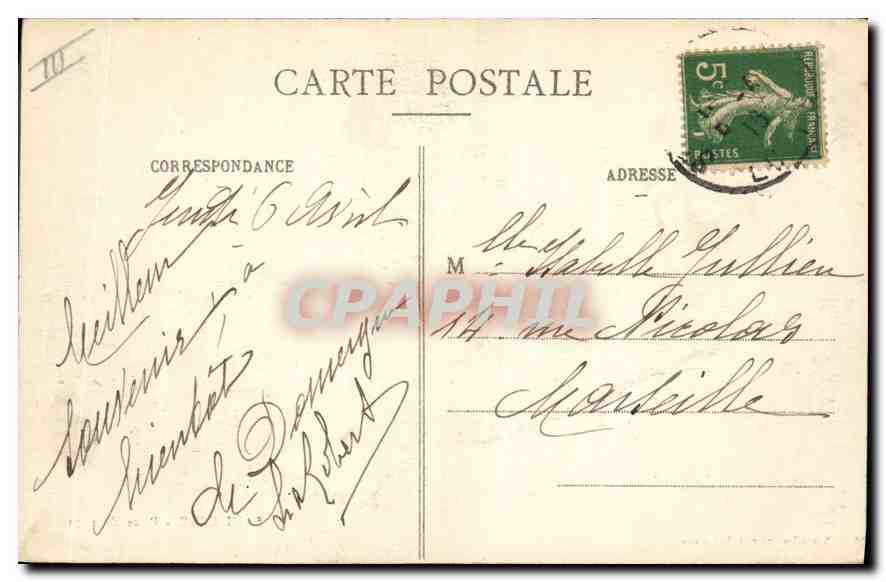 III
CARTE POSTALE
CORRESPONDANCE
ADRESSE
5c
REPUBLIQUE FRANÇAISE
POSTES
Jeudi 6 Avril
Meilleur
souvenir, à
bientôt
de Domergue
Robert
M lle Isabelle Jullien
14 rue Nicolas
Marseille
CPAPHIL